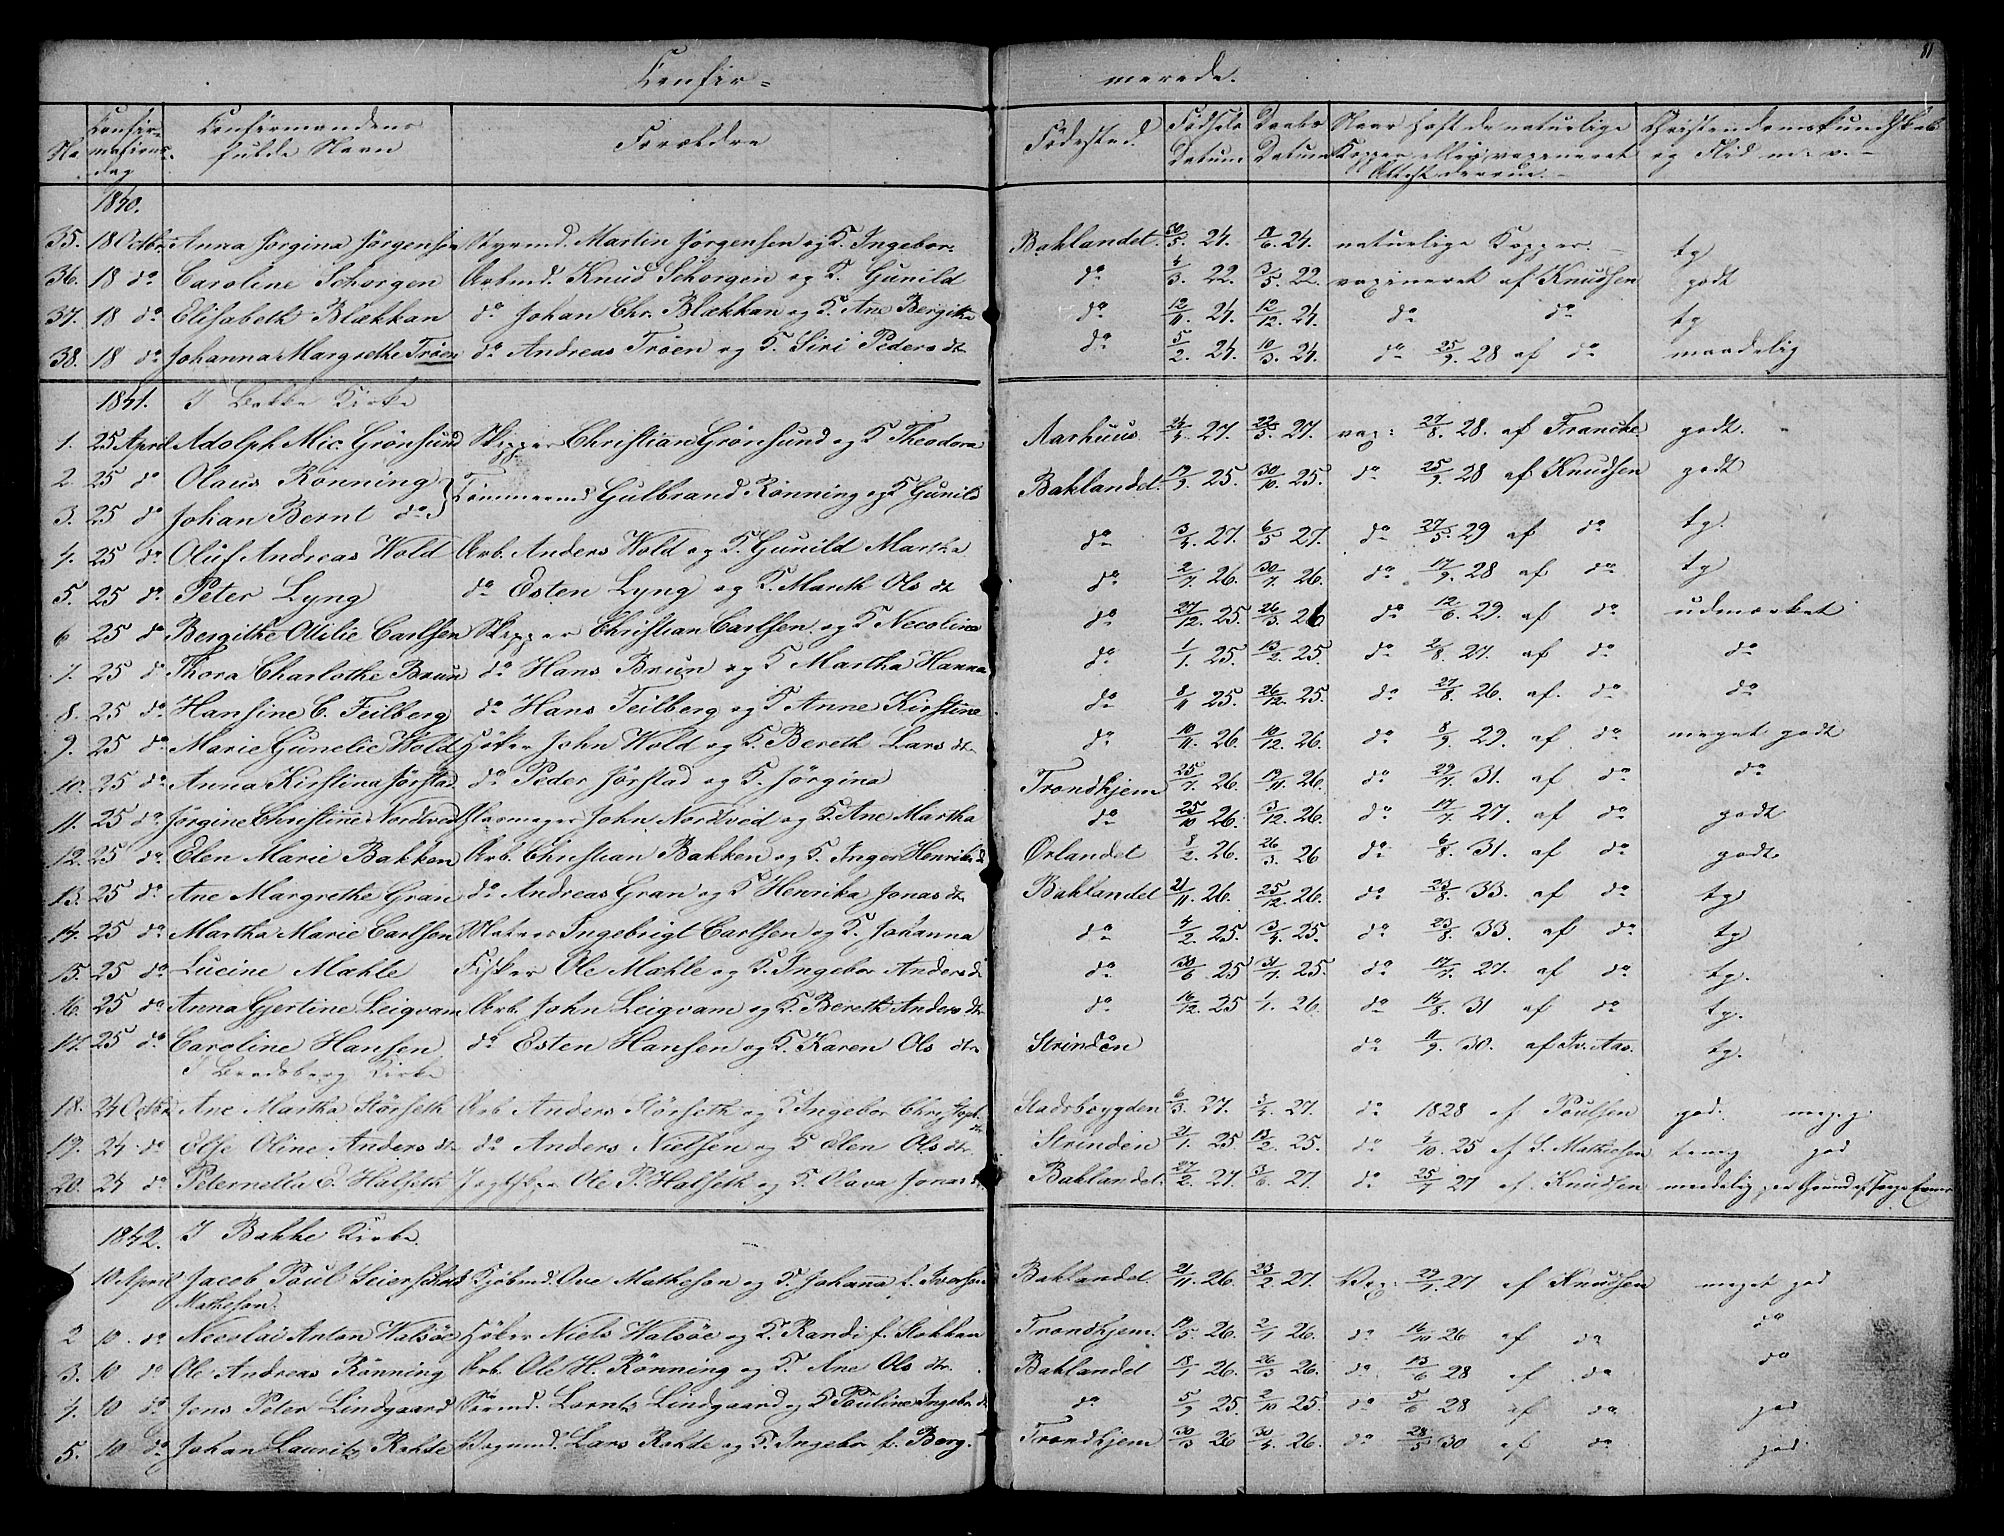 81
Confir= merede.
No Confirmations dag Confirmandens fulde Navn Forældre Fødested. Fødsels Datum Daabs Datum Naar haft de naturlige Kopper eller vaxineret Attest derom.- Christendomskundskab og Flid m: v.-
1840.
35. 18 Octbr. Anna Jørgina Jørgensen Styrmd. Martin Jørgensen og K. Ingebor. Baklandet. 30/5. 24. 24. naturlige Kopper. tg
36. 18 do Caroline Schorgen Arbmd. Knud Schorgen og K. Gunild do 4/3. 22. 3/5. 22. vaxineret af Knudsen godt
37. 18 do Elisabeth Blækkan do Johan Chr. Blækkan og K. Ane Bergitte do 12/11 24. 12/12. 24. do do tg
38. 18 do Johanna Margrethe Trøen do Andreas Trøen og K. Siri Peders dr do 5/2. 24. 10/3. 24. do 25/9. 28 af do maadelig
1841. I Bakke Kirke
1. 25 April Adolph Mic. Grønsund Skipper Christian Grønsund og K Theodora Aarhuus 24/4. 27. 22/5. 27. vax: 27/8. 28. af Francke godt.
2. 25 do Olaus Rønning Tømmermd Gulbrand Rønning og K Gunild Baklandet. 19/9. 25. 30/10. 25. do 25/9. 28 af Knudsen godt
3. 25 do Johan Bernt do do 3/4. 27. 6/5 27. do 27/5. 29 af do tg.
4. 25 do Oluf Andreas Wold Arb. Anders Wold og K. Gunild Martha do 2/7. 26. 30/7. 26. do 17/9. 28 af do tg
5. 25 do Peter Lyng do Esten Lyng og K. Mareth Ols dr do 27/12. 25. 26/3. 26 do 12/6. 29. af do udmærket
6 25 do Bergithe Ottilie Carlsen Skipper Christian Carlsen og K Necoline do 1/1. 25. 13/2. 25. do 2/8. 27. af do do
7. 25 do Thora Charlothe Brun do Hans Brun og K Martha Hanna do 8/11 25. 26/12. 25. do 27/8. 26. af. do do
8. 25 do Hansine C. Feilberg do Hans Feilberg og K Anne Kirstine do 10/11. 26. 10/12. 26. do 8/9. 29. af do meget godt
9. 25 do Marie Gunelie Wold Høker John Wold og K Bereth Lars dr Trondhjem 25/7. 26. 19/11. 26. do 29/7. 31. af do do
10. 25 do Anna Kirstina Jørstad do Peder Jørstad og K. Jørgina do 25/10 26. 3/12. 26. do 17/7. 27. af do godt
11. 25 do Jørgine Christine Nordvid John Nordvid og K Ane Martha Ørlandet 8/2. 26. 26/3. 26 do 6/8. 31. af do godt
12. 25 do Elen Marie Bakken Arb. Christian Bakken og K. Inger Henriks d Baklandet 21/11. 26. 25/12. 26. do 23/8. 33. af do tg
13. 25 do Ane Margrethe Gran do Andreas Gran og K Henrika Jonas dr do 4/2. 25. 3/4. 25. do 23/8. 33. af do tg
14. 25 do Martha Marie Carlsen Matros Ingebrigt Carlsen og K. Johanna do 30/6. 25 31/7. 25. do 17/7. 27. af do tg.
15. 25 do Lucine Mæhle Fisker Ole Mæhle og K. Ingebor Anders d do 16/12. 25 1/1. 26. do 14/8. 31 af do tg.
16. 25 do Anna Gjertine Leigvam Arb. John Leigvam og K. Bereth Anders dr Strinden do 11/9. 30. af tg.
17. 25 do Caroline Hansen do Esten Hansen og K. Karen Ols dr
I Bradsberg Kirke
18. 24 Octbr. Ane Martha Størseth Arb. Anders Størseth og K Ingebor Christoph. dr Stadsbøygden 6/3. 27. 3/4. 27. do 1828 af Poulsen god. meg. g.
19. 24 do Else Oline Anders dr do Anders Nielsen og K Elen Ols dr Strinden 21/1. 25 13/2. 25. do 4/10. 25 af S. Mathiesen temg god
20. 24 do Peternella E. Halseth Ole P. Halseth og K. Olava Jonas d Baklandet. 27/2. 27. 3/6. 27. do 25/7 27 af Knudsen maadelig paa Grund af
1842. I Bakke Kirke.
1. 10 April Jacob Paul Seierschiold Matheson. Kjøbmd. Ove Matheson og K. Johana f. Iversen Baklandet 21/11. 26. 23/2. 27. Vax: 29/7. 27 af Knudsen meget god
2 10. do Necolai Anton Walsøe Høker Niels Walsøe og K. Randi f. Stokkan Trondhjem. 19/5. 26. 2/7. 26. do 16/10 26 af do do
3. 10 do Ole Andreas Rønning Arb. Ole H. Rønning og K. Ane Ols dr. Baklandet 18/1. 26. 26/3 26. do 13/6 28 af do do
4. 10 do Jens Peter Lindgaard Lornts Lindgaard og K Pauline Ingebr. d do 5/9 25. 2/10. 25. do 5/6 28 af do god
5. 10 do Johan Lauritz Rohde Vognmd. Lars Rohde og K. Ingebor f. Berg. Trondhjem 30/3 26 30/4. 26. do 28/5 30 af do god.